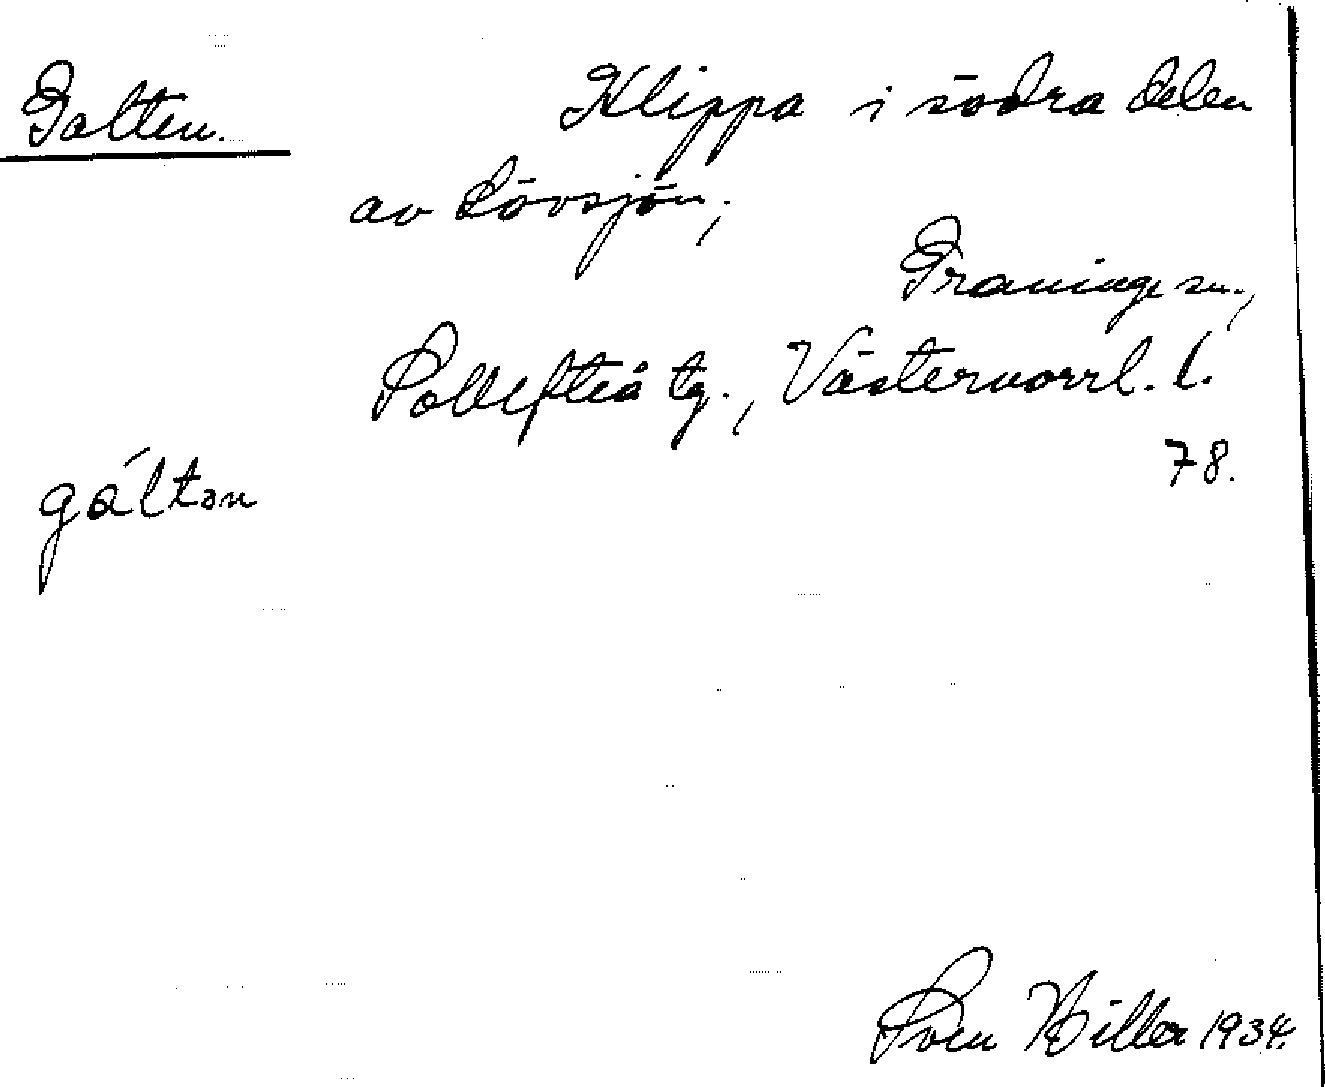 Galten.
Klippa i södra delen
av Lövsjön,
Graninge sn.,
Sollefteå tg., Västernorrl. l.
78.
gáltən
Sven Hiller 1934.